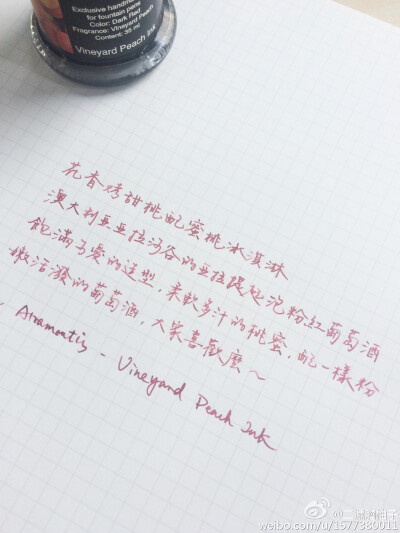 Exclusive handmade
for fountain pens
Color: Dark Red
Fragrance: Vineyard Peach
Content: 35 ml
Vineyard Peach Ink
花香烤甜桃配蜜桃冰淇淋
澳大利亞亞拉河谷的亞拉提起泡粉紅葡萄酒
飽滿可愛的造型,柔軟多汁的桃蜜,配一樣粉
嫩活潑的葡萄酒,大家喜歡麼~
Atramentis - Vineyard Peach Ink
weibo.com/u/1577380011